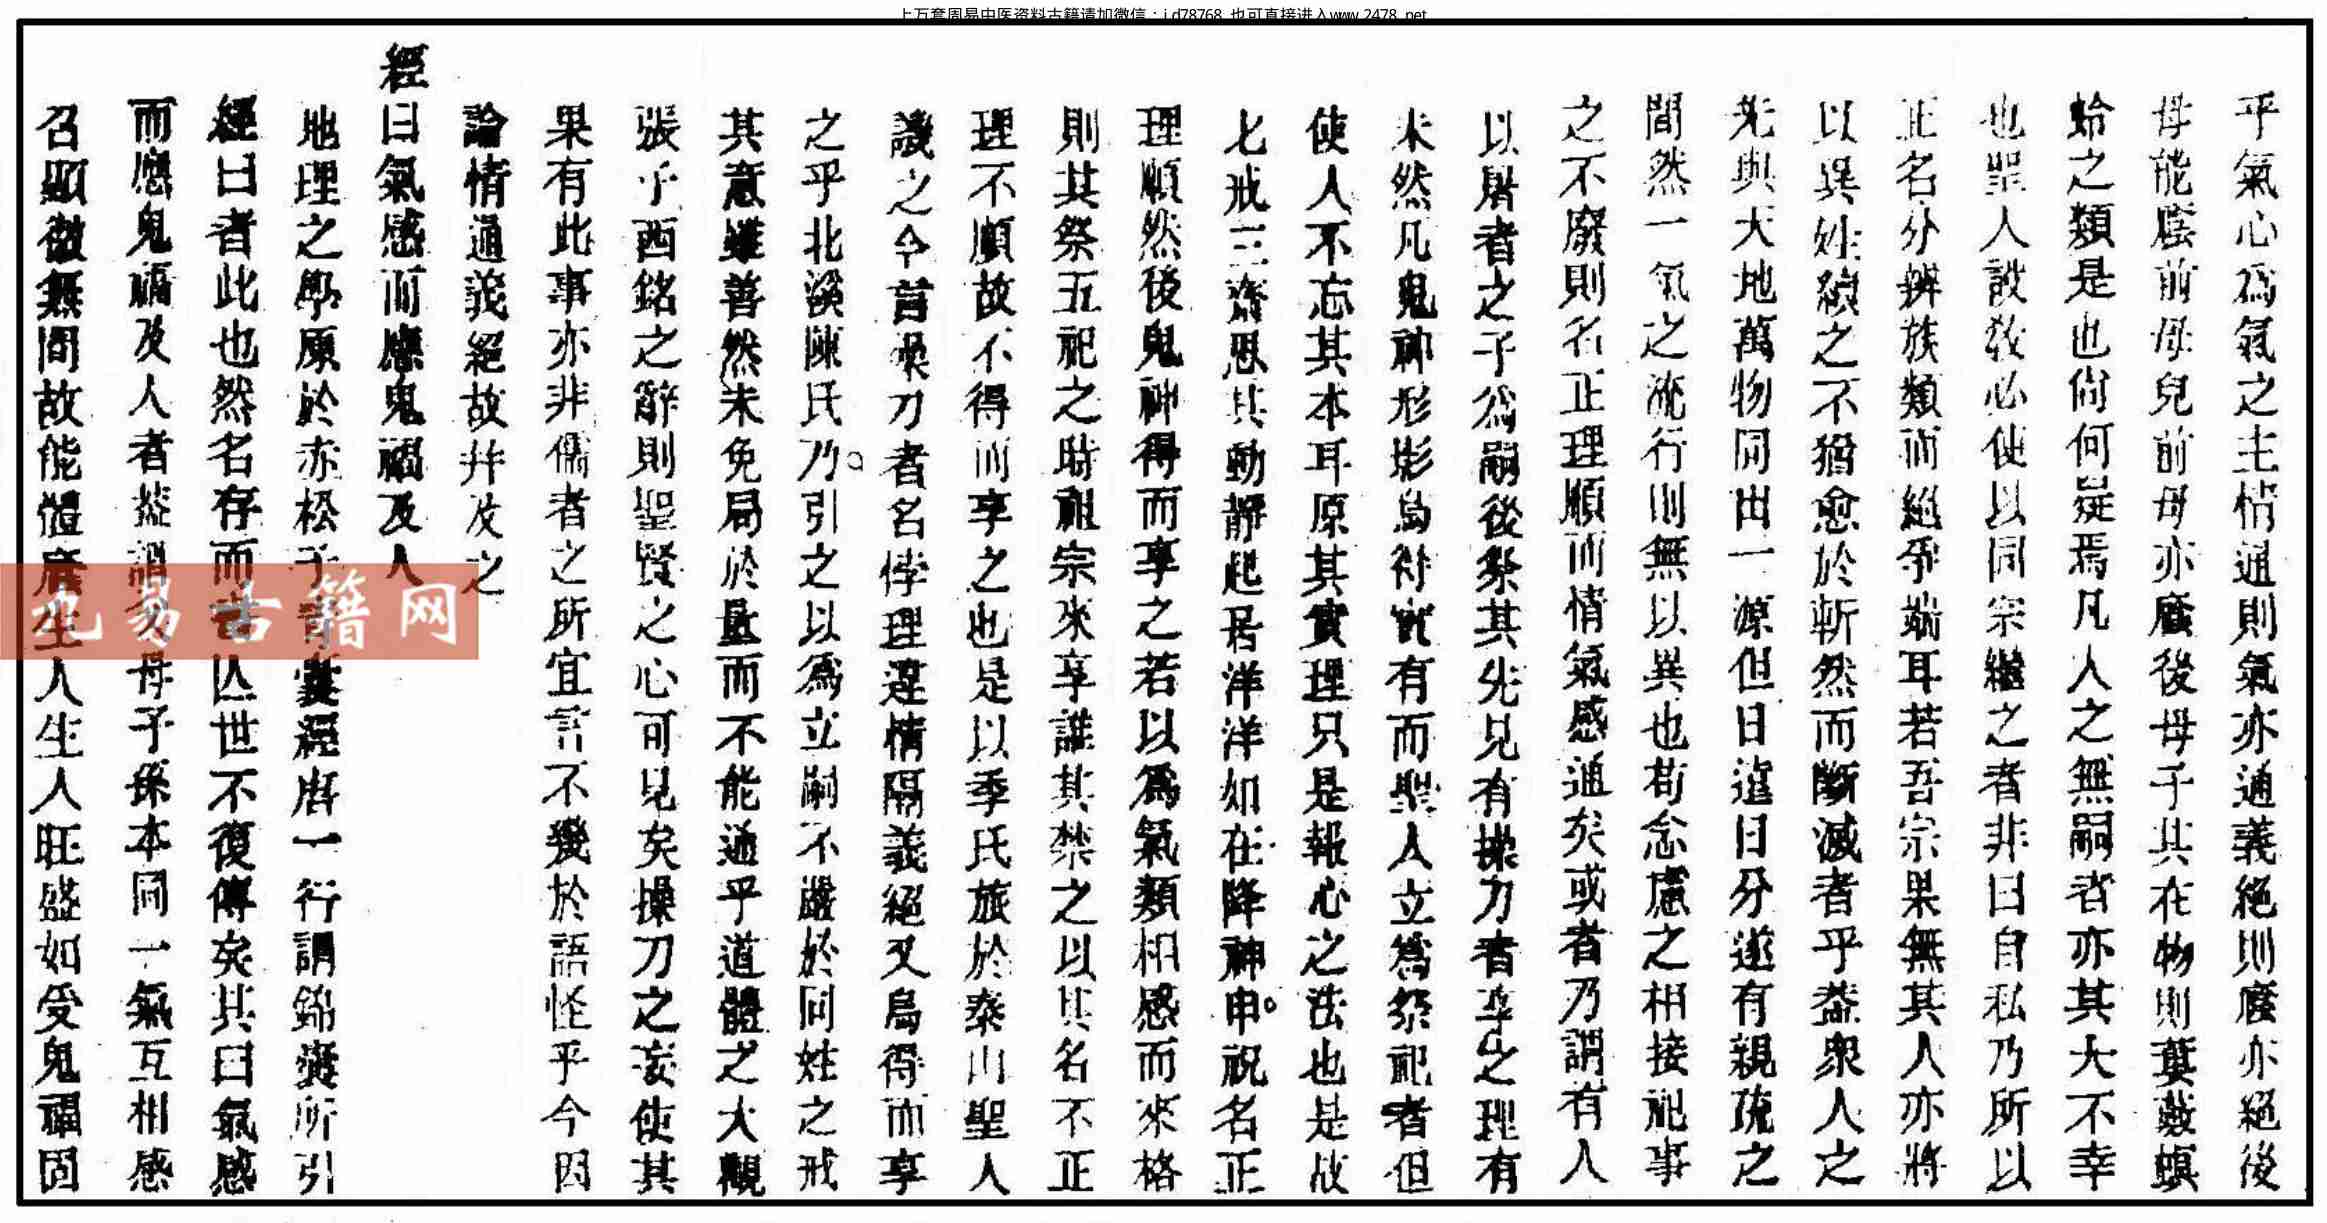 上万套周易中医资料古籍请加微信：jd78768 也可直接进入www.2478.net
乎氣心爲氣之主情通則氣亦通義絕則廕亦絕後
母能廕前母兒前母亦廕後母子其在物則蓂蔜螟
蛉之類是也尙何疑焉凡人之無嗣者亦其大不幸
也聖人設教必使以同宗繼之者非曰自私乃所以
正名分辨族類而絕爭端耳若吾宗果無其人亦將
以異姓續之不猶愈於斬然而斷滅者乎葢衆人之
先與天地萬物同出一源但日遠日分遂有親疏之
間然一氣之流行則無以異也苟念慮之相接祀事
之不廢則名正理順而情氣感通矣或者乃謂有人
以屠者之子爲嗣後祭其先見有操刀者享之理有
未然凡鬼神形影爲有而聖人立爲祭祀者但
使人不忘其本耳原其實理只是報心之法也是故
七戒三齋思其動靜起居洋洋如在降神申祝名正
理順然後鬼神得而享之若以爲氣類相感而來格
則其祭五祀之時祖宗來享誰其禁之以其名不正
理不順故不得而享之也是以季氏旅於泰山聖人
譏之今言操刀者名悖理違情隔義絕又烏得而享
之乎北溪陳氏乃引之以爲立嗣不嚴於同姓之戒
其意雖善然未免局於量而不能通乎道體之大觀
張子西銘之辭則聖賢之心可見矣操刀之妄使其
果有此事亦非儒者之所宜言不幾於語怪乎今因
論情通義絕故幷及之
經曰氣感而應鬼福及人
地理之學原於赤松子靑囊經唐一行謂錦囊所引
經曰者此也然名存而書亾世不復傳矣其曰氣感
而應鬼福及人者葢謂父母子孫本同一氣互相感
召顯微無間故能體廕生人生人旺盛如受鬼福固
九易古籍网